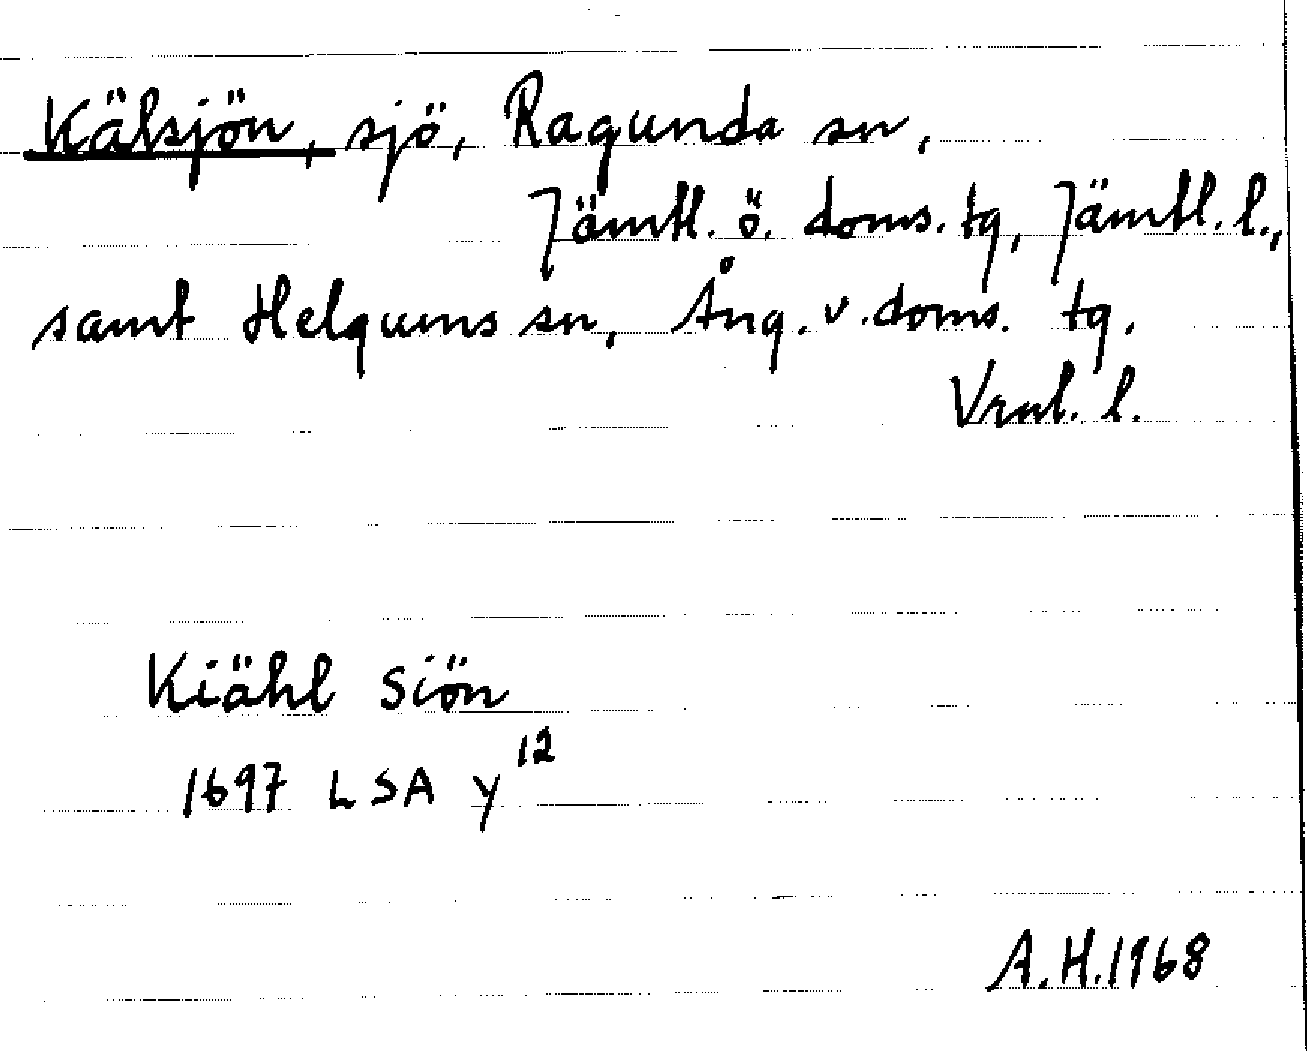 Kälsjön, sjö, Ragunda sn,
Jämtl. ö. doms. tg, Jämtl. l.,
samt Helgums sn, Ång. v. doms. tg.
Vrnl. l.
Kiähl Siön
1697 LSA y 12
A.H. 1968